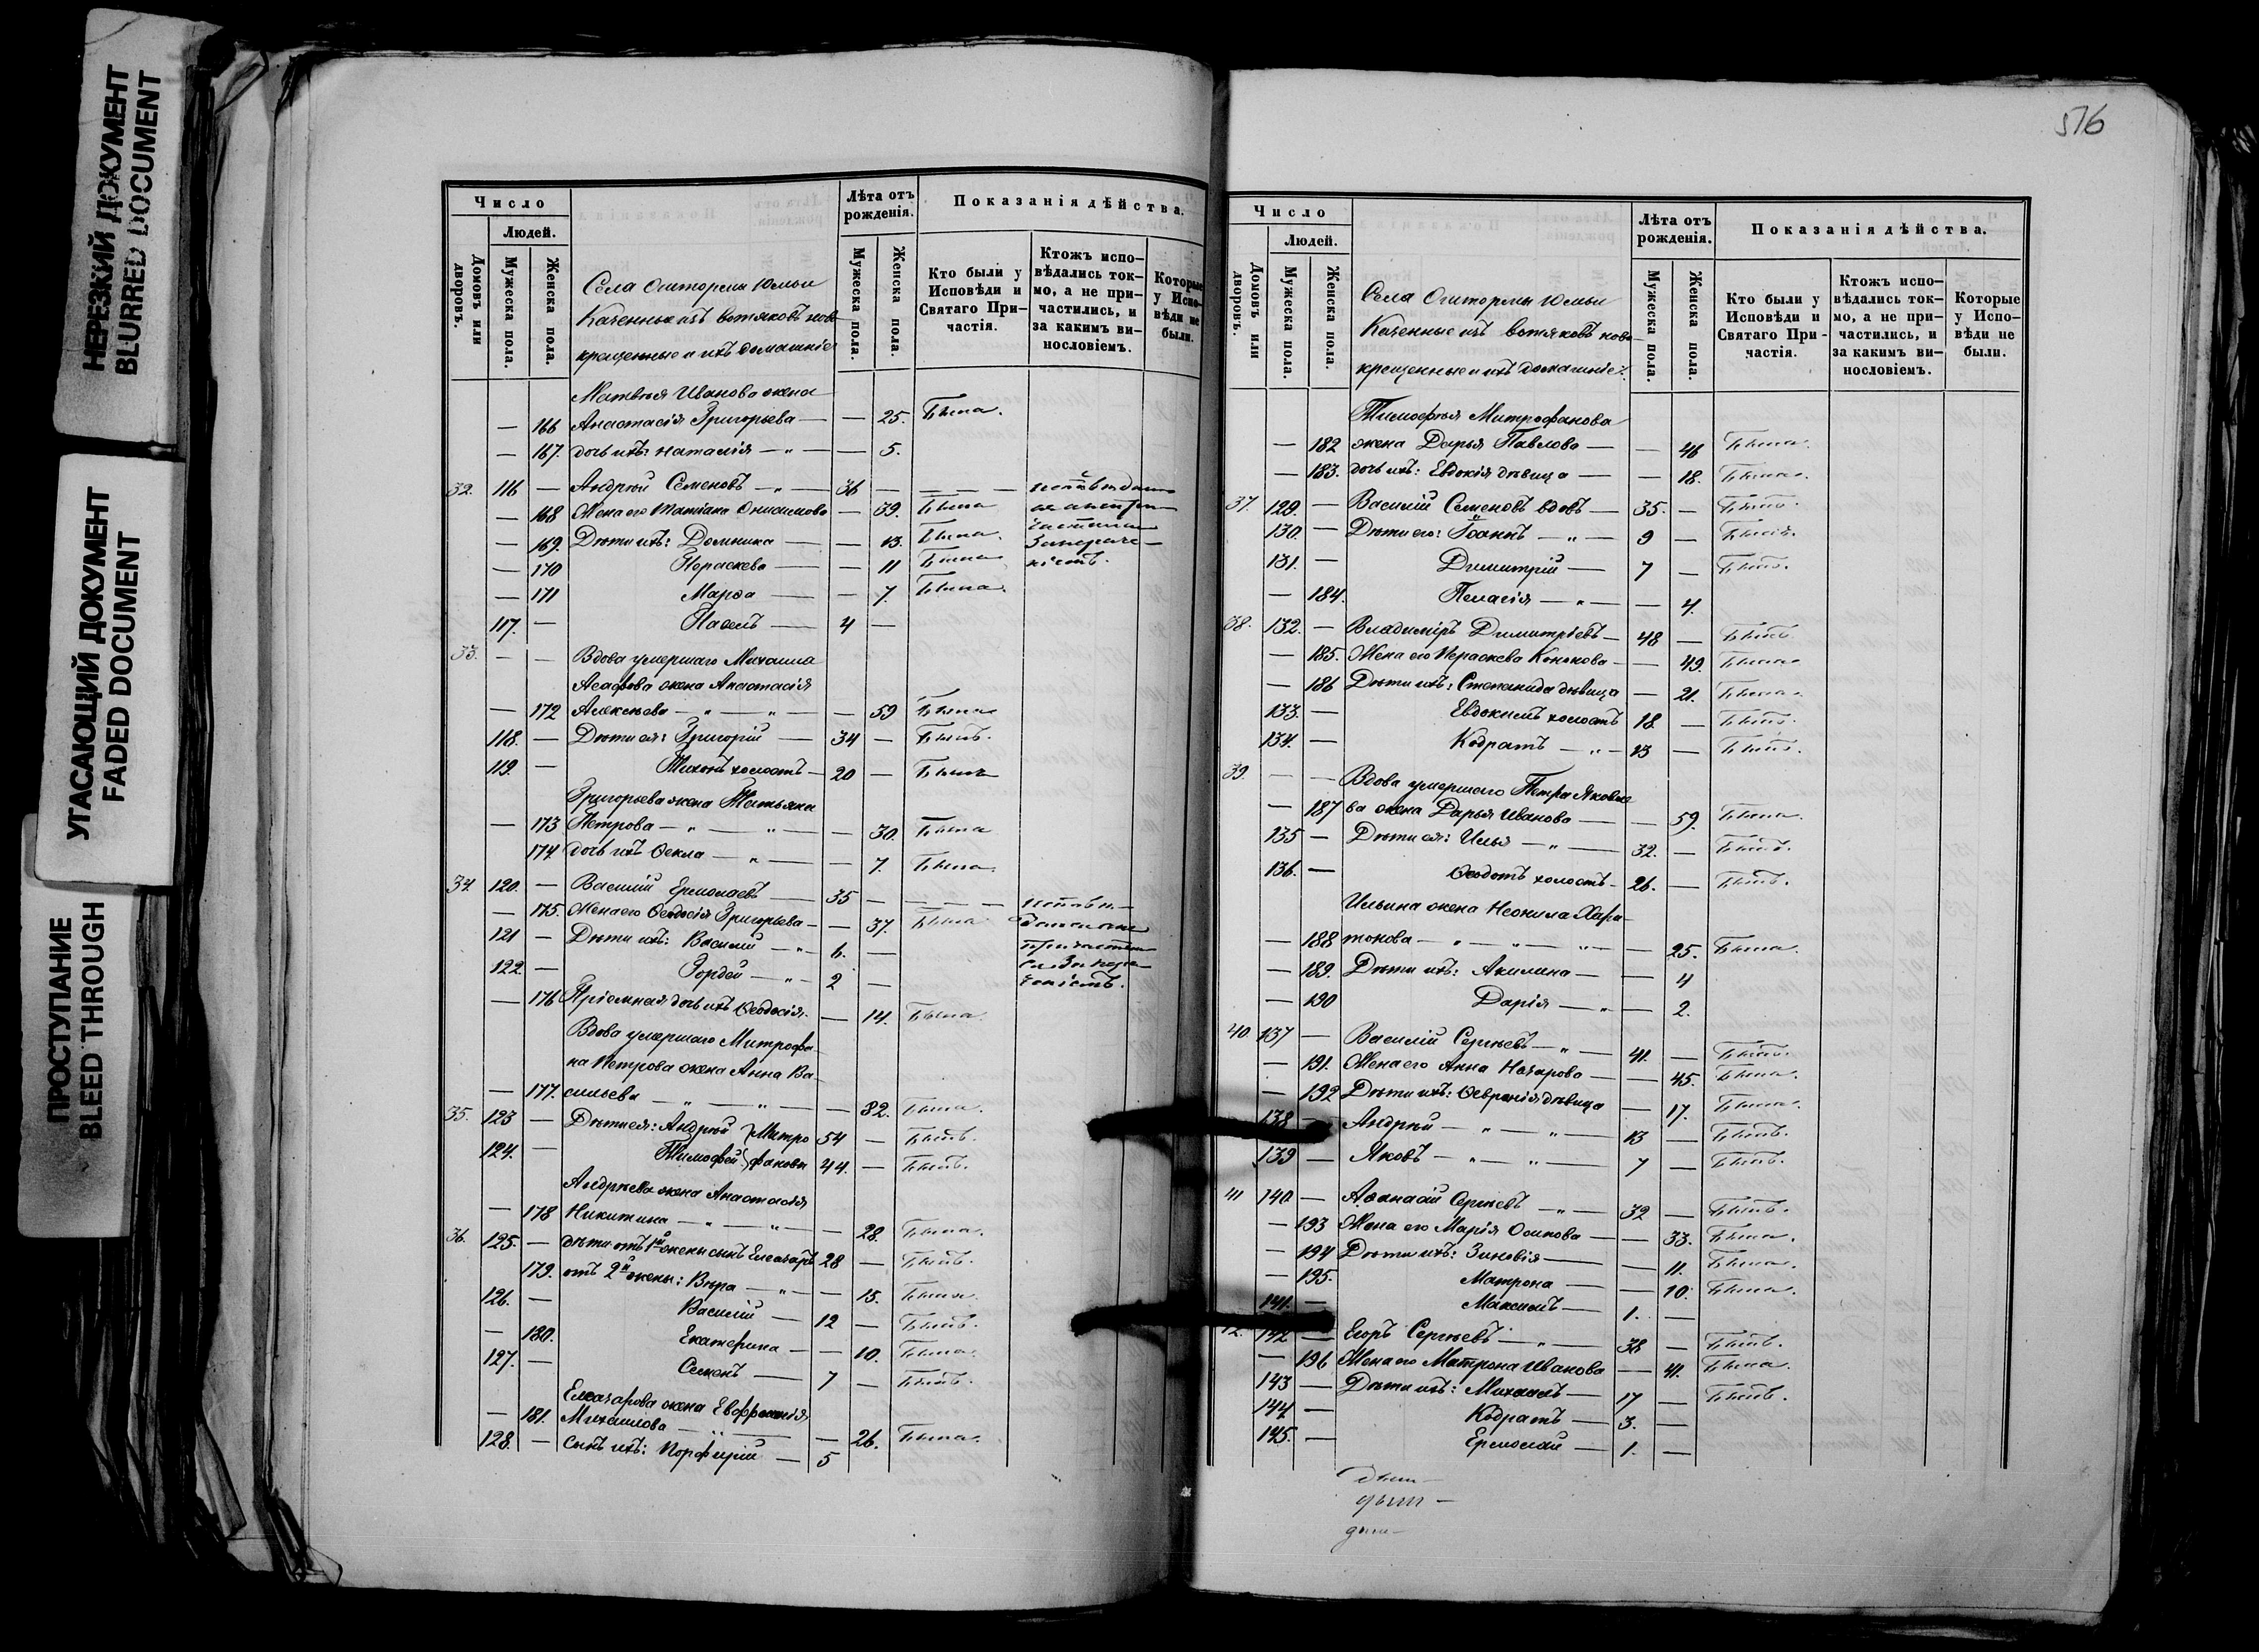 НЕРЕЗКИЙ ДОКУМЕНТ
BLURRED DOCUMENT
УГАСАЮЩИЙ ДОКУМЕНТ
FADED DOCUMENT
ПРОСТУПАНИЕ
BLEED THROUGH
Число
Людей.
Домовъ или дворовъ.
Мужеска пола.
Женска пола.
Села
Казенные изъ вотяковъ ново
крещенные и ихъ домашніе
Лѣта отъ рожденія.
Мужеска пола.
Женска пола.
Показанія дѣйства.
Кто были у Исповѣди и Святаго При-частія.
Ктожъ испо-вѣдались ток-мо, а не при-частились, и за какимъ ви-нословіемъ.
Которые у Испо-вѣди не были.
Матвѣя Иванова жена
— 166 Анастасія Григорьева — — 25. Была.
— 167. дочь ихъ: Наталія — „ — — 5.
32. 116 — Андрей Семеновъ — „ — 36 — — — —
— 168 Жена его Татіана Онисимова — 39. Была
— 169. Дѣти ихъ: Домника — — 13. Была.
— 170 Параскева — — 11 Была
— 171 Марѳа — — 7. Была.
117. — Павелъ — 4 —
33. — — Вдова умершаго Михаила
жена Анастасія
— 172 Алексѣева — „ — „ — — 59 Была
118. — Дѣти ея: Григорій — 34 — Былъ.
119. — Тихонъ холостъ — 20 — Былъ
Григорьева жена Татьяна
— 173 Петрова — „ — „ — — 30. Была
174. дочь ихъ Ѳекла — „ — — 7. Была.
34. 120. — Василій Ермолаевъ — 35 — — — —
— 175. Жена его Ѳеодосія Григорьева — — 37. Была
121 — Дѣти ихъ: Василій — „ 6. —
122. — Гордей — „ — 2 —
— 176 Пріемная дочь ихъ Ѳеодосія. — 14. Была
Вдова умершаго Митрофа-
на Петрова жена Анна Ва-
— 177. сильева — „ — „ — — 82. Была.
35. 123 — Дѣти ея: Андрей } Митро 54 — Былъ.
124. — Тимофей } фановы 44. — Былъ.
Андрѣева жена Анастасія
— 178 Никитина — „ — „ — — 28. Была.
36. 125. — дѣти отъ 1й жены сынъ Елеазаръ 28 — Былъ.
179. отъ 2й жены: Вѣра — „ — — 15. Была.
126. — Василій — 12 — Былъ.
— 180. Екатерина — — 10. Была.
127. — Семенъ — 7 — Былъ.
Елеазарова жена Евфросинія
— 181. Михаилова — „ — — 26. Была.
128. — сынъ ихъ: Порфирій — 5
516
Число
Людей.
Домовъ или дворовъ.
Мужеска пола.
Женска пола.
Села
Казенные изъ вотяковъ ново-
крещенные и ихъ домашніе.
Лѣта отъ рожденія.
Мужеска пола.
Женска пола.
Показанія дѣйства.
Кто были у Исповѣди и Святаго При-частія.
Ктожъ испо-вѣдались ток-мо, а не при-частились, и за какимъ ви-нословіемъ.
Которые у Испо-вѣди не были.
Тимофѣя Митрофанова
— 182 жена Дарья Павлова — — 46 Была.
— 183. дочь ихъ: Евдокія дѣвица — — 18. Была.
37. 129. — Василій Семеновъ вдовъ — 35. — Былъ.
130. — Дѣти его: Іоаннъ — „ — 9 — Былъ.
131. — Димитрій — 7 — Былъ.
— 184. Пелагія — „ — — 4.
38. 132. — Владиміръ Димитріевъ — 48 — Былъ.
— 185. Жена его Параскева Кононова — — 49. Была
— 186 Дѣти ихъ: Степанида дѣвица — 21. Была.
133. — Евдокимъ холостъ 18. — Былъ.
134. — Кодратъ — „ — 13 — Былъ.
39. — — Вдова умершаго Петра Яковле
— 187 ва жена Дарья Иванова — — 59. Была.
135 — Дѣти ея: Илья — „ — 32. — Былъ.
136. — Ѳеодотъ холостъ — 26. — Былъ.
Ильина жена Неонила Хари-
— 188 тонова — „ — „ — „ — — 25. Была.
— 189. Дѣти ихъ: Акилина — — 4
— 190 Дарія — „ — 2.
40. 137 — Василій Сергѣевъ — „ — 41. — Былъ.
— 191. Жена его Анна Назарова — — 45. Была.
— 192 Дѣти ихъ: Ѳевронія дѣвица — 17. Была.
138 — Андрей — „ — „ — 13 — Былъ.
139 — Яковъ — „ — „ — 7 — Былъ.
41 140. — Аѳанасій Сергѣевъ — „ — 32 — Былъ.
— 193 Жена его Марія Осипова — — 33. Была.
— 194 Дѣти ихъ: Зиновія — — 11. Была.
— 195. Матрона — — 10. Была.
141. — Максимъ — 1. —
142 — Егоръ Сергѣевъ — „ — 38 — Былъ.
— 196 Жена его Матрона Иванова — 41. Была.
143 — Дѣти ихъ: Михаилъ — 17 — Былъ.
144 — Кодратъ — 3. —
145. — Ермолай — 1. —